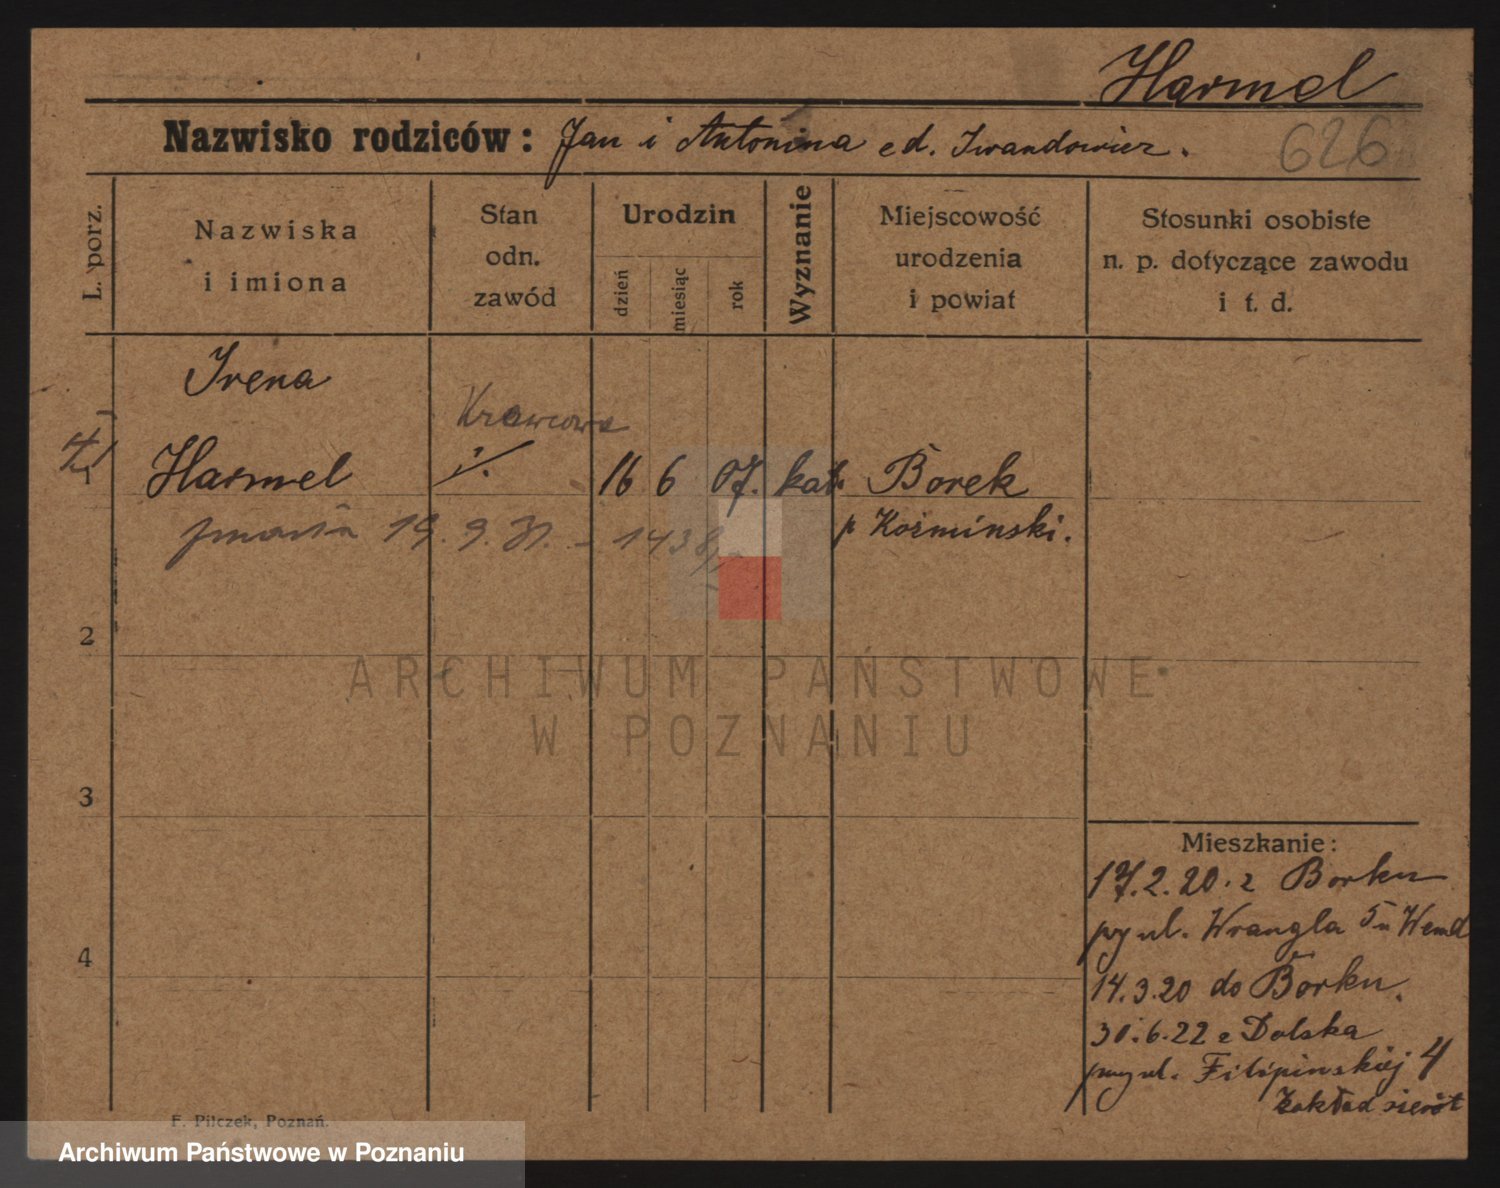 Harmel
Nazwisko rodziców: Jan i Antonina ed. Iwandowicz.
626
L. porz.
Nazwiska
i imiona
Stan
odn.
zawód
Urodzin
dzień
miesiąc
rok
Wyznanie
Miejscowość
urodzenia
i powiat
Stosunki osobiste
n. p. dotyczące zawodu
i t. d.
Irena
Krawcowa
1
Harmel
16 6 07. kat. Borek
zmarła 19.9.31. - 1438/
p Koźminski.
2
3
4
ARCHIWUM PAŃSTWOWE
W POZNANIU
Mieszkanie:
17.2.20. z Borku
przy ul. Wrangla 5 u Wemd
14.3.20 do Borku.
30.6.22 z Dolska
przy ul. Filipinskiej 4
Zakład sierót
F. Pilczek, Poznań.
Archiwum Państwowe w Poznaniu